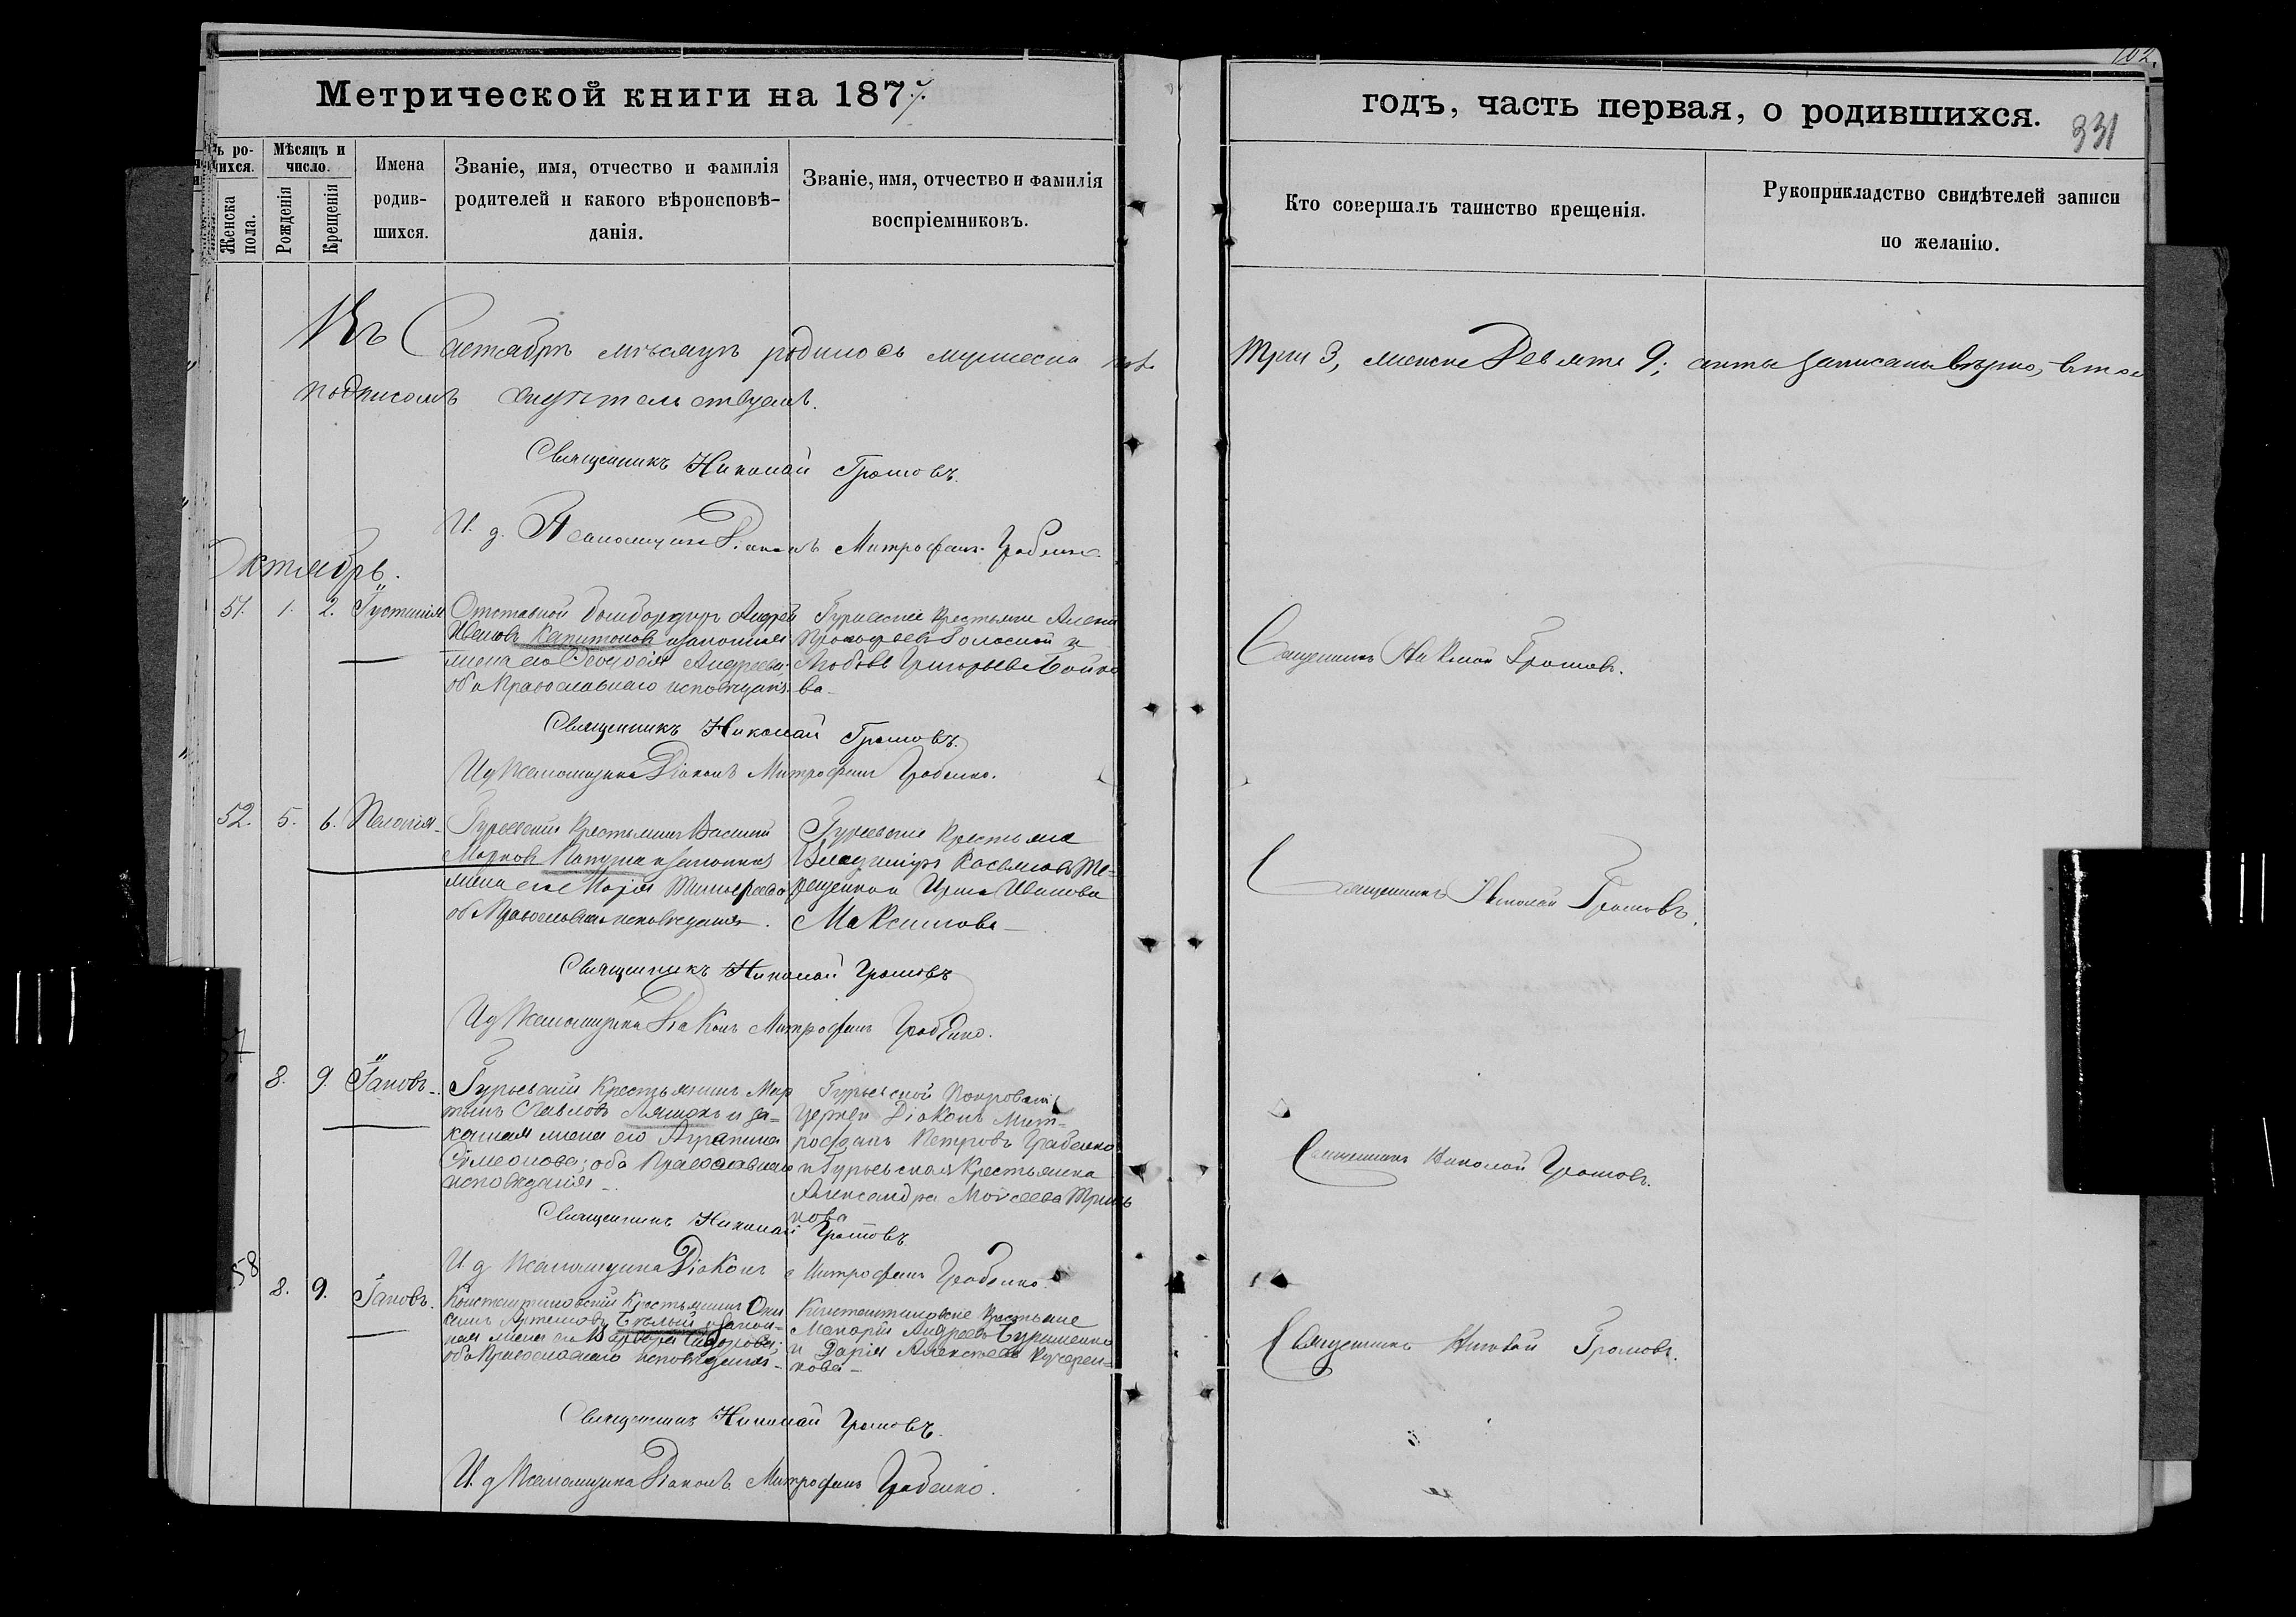 102.
Метрической книги на 1877.
годъ, часть первая, о родившихся.
331
ъ ро-
ихся.
Женска пола.
Мѣсяцъ и число.
Рожденія
Крещенія
Имена родив-
шихся.
Званіе, имя, отчество и фамилія
родителей и какого вѣроисповѣ-
данія.
Званіе, имя, отчество и фамилія
воспріемниковъ.
Кто совершалъ таинство крещенія.
Рукоприкладство свидѣтелей записи
по желанію.
Въ Сентябрѣ мѣсяцѣ родилось мужеска
три 3, женска Девять 9; акты записаны вѣрно, въ том
подписомъ
Священникъ Николай Громовъ.
И. д. Псаломщика Діаконъ Митрофанъ Грабенко.
Октябрь.
51. 1. 2. Іустинія
Отставной бомбардиръ Андрей
Ивановъ Капитоновъ и законная
жена его Ѳеодосія Андреева,
оба Православнаго исповѣданія.
Гурьевскіе крестьяне
Прокофьевъ Голосной и
Любовь Григорьева Бойко
ва
Священникъ Николай Громовъ.
Священникъ Николай Громовъ.
И д Псаломщика Діаконъ Митрофанъ Грабенко.
52. 5. 6. Пелагія
Гурьевскій крестьянинъ Василій
Марковъ Папуша и законная
жена его Марія
оба Православнаго исповѣданія.
Гурьевскіе крестьяне
Владиміръ Косьмовъ Те-
рещенко и Ирина Иванова
Максимова
Священникъ Николай Громовъ.
Священникъ Николай Громовъ
И д Псаломщика Діаконъ Митрофанъ Грабенко.
57
8. 9. Іаковъ
Гурьевскій Крестьянинъ Мар
тинъ Павловъ Ляшокъ и за-
конная жена его Агрипина
Симеонова; оба Православнаго
исповѣданія
Гурьевской Покровской
церкви Діаконъ Мит-
рофанъ Петровъ Грабенко
и Гурьевская Крестьянка
Александра Моисеева Триш
кова
Священникъ Николай Громовъ.
Священникъ Николай Громовъ
И д Псаломщика Діаконъ Митрофанъ Грабенко.
58
8. 9. Іаковъ.
Константиновскій Крестьянинъ Они
симъ Артемовъ Бѣлый и закон-
ная жена его Варвара Сидорова;
оба Православнаго исповѣданія
Константиновскіе крестьяне
Макарій Андреевъ Буршенко
и Дарія Алексѣева Кучерен-
кова
Священникъ Николай Громовъ.
Священникъ Николай Громовъ.
И. д Псаломщика Діаконъ Митрофанъ Грабенко.